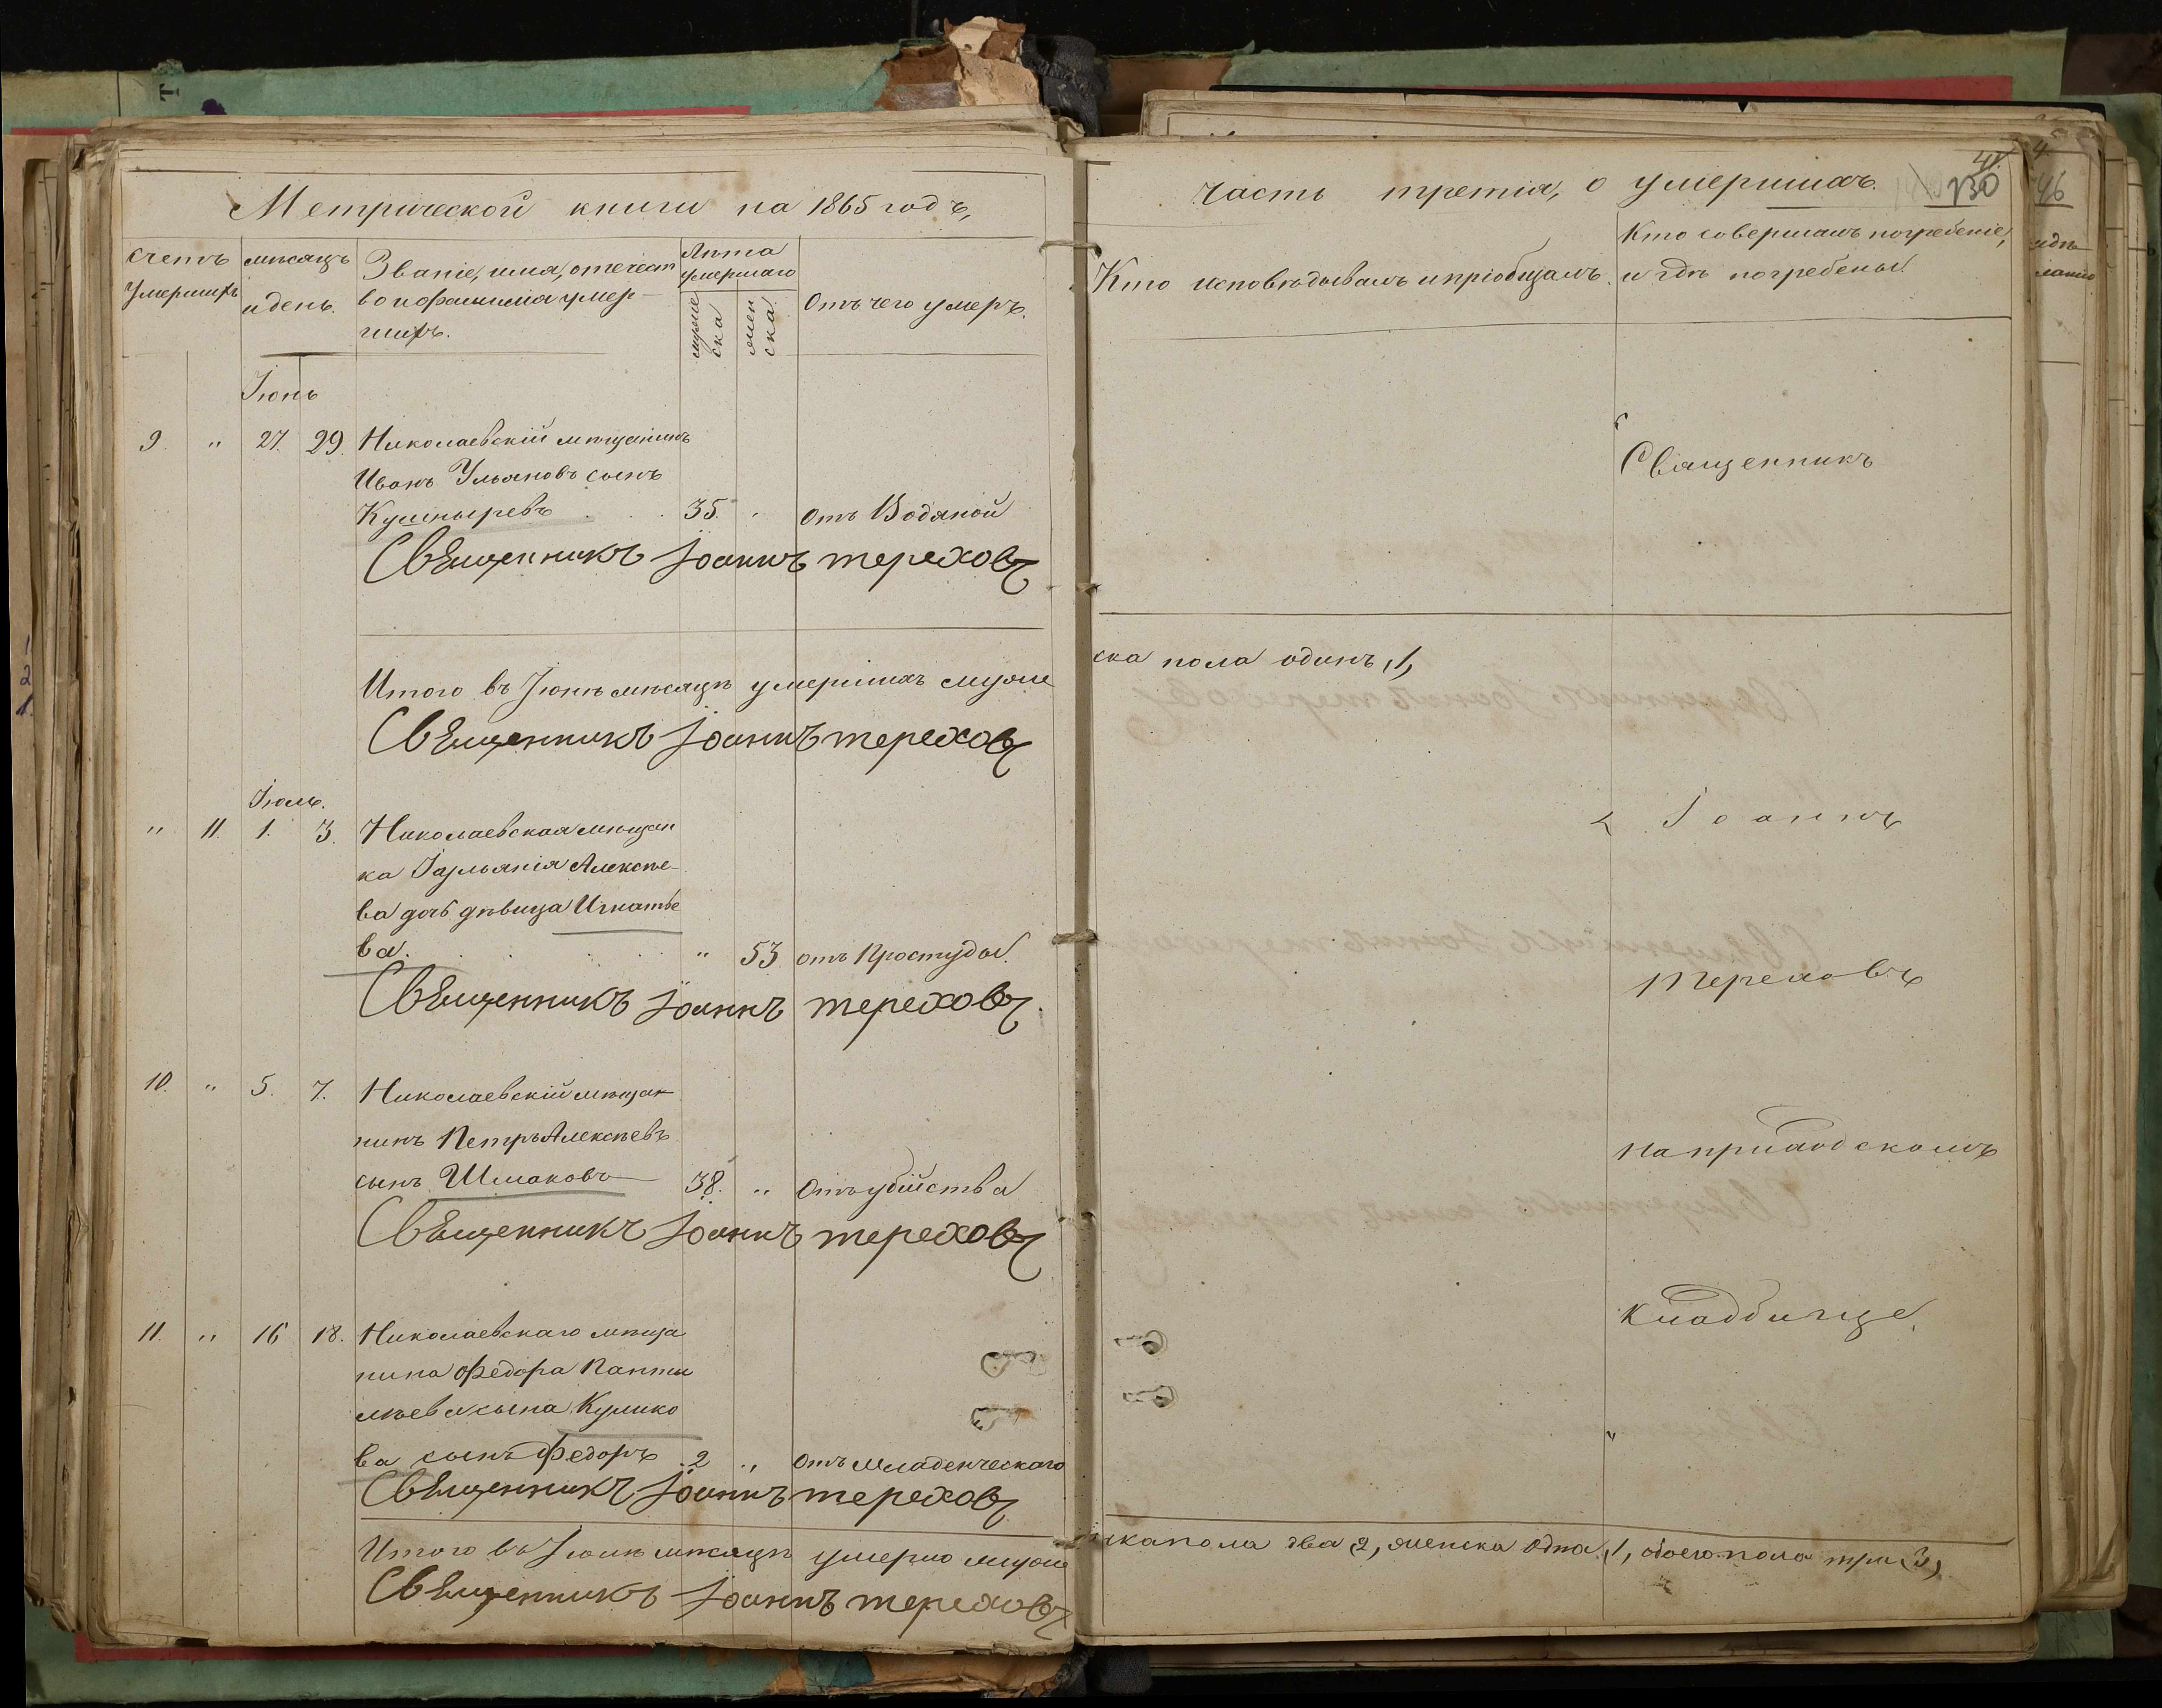 Метрической книги на 1865 годъ,
Счетъ умершихъ
мѣсяцъ и день.
Званіе, имя, отечест
во и фамилія умер-
шихъ.
Лѣта умершаго
мужеска
женска
Отъ чего умеръ.
Іюнь
9. " 27. 29. Николаевскій мѣщанинъ
Иванъ Ульяновъ сынъ
Кушныревъ 35. " отъ Водяной
Священникъ Іоаннъ Тереховъ
Итого въ Іюнѣ мѣсяцѣ умершихъ муже
Священникъ Іоаннъ Тереховъ
Іюль.
" 11. 1. 3. Николаевская мѣщан
ка Іульянія Алексѣе-
ва дочь дѣвица Игнатье
ва. " 53 отъ Простуды.
Священникъ Іоаннъ Тереховъ.
10. " 5. 7. Николаевскій мѣщан
нинъ Петръ Алексѣевъ
сынъ Шмаковъ 38. " Отъ убійства
Священникъ Іоаннъ Тереховъ
11. " 16 18. Николаевскаго мѣща
нина Федора Панти
лѣева сына Кулико
ва сынъ Федоръ 2 " Отъ Младенческаго
Священникъ Іоаннъ Тереховъ
Итого въ Іюлѣ мѣсяцѣ умерло муже
Священникъ Іоаннъ Тереховъ
часть третія, о умершихъ.
41
130
Кто исповѣдывалъ и пріобщалъ.
Кто совершалъ погребеніе,
и гдѣ погребены.
Священникъ
ска пола одинъ, 1,
Іоаннъ
Тереховъ
На приходскомъ
Кладбище,
ска пола два, 2, женска одна, 1, обоего пола три, 3,
46